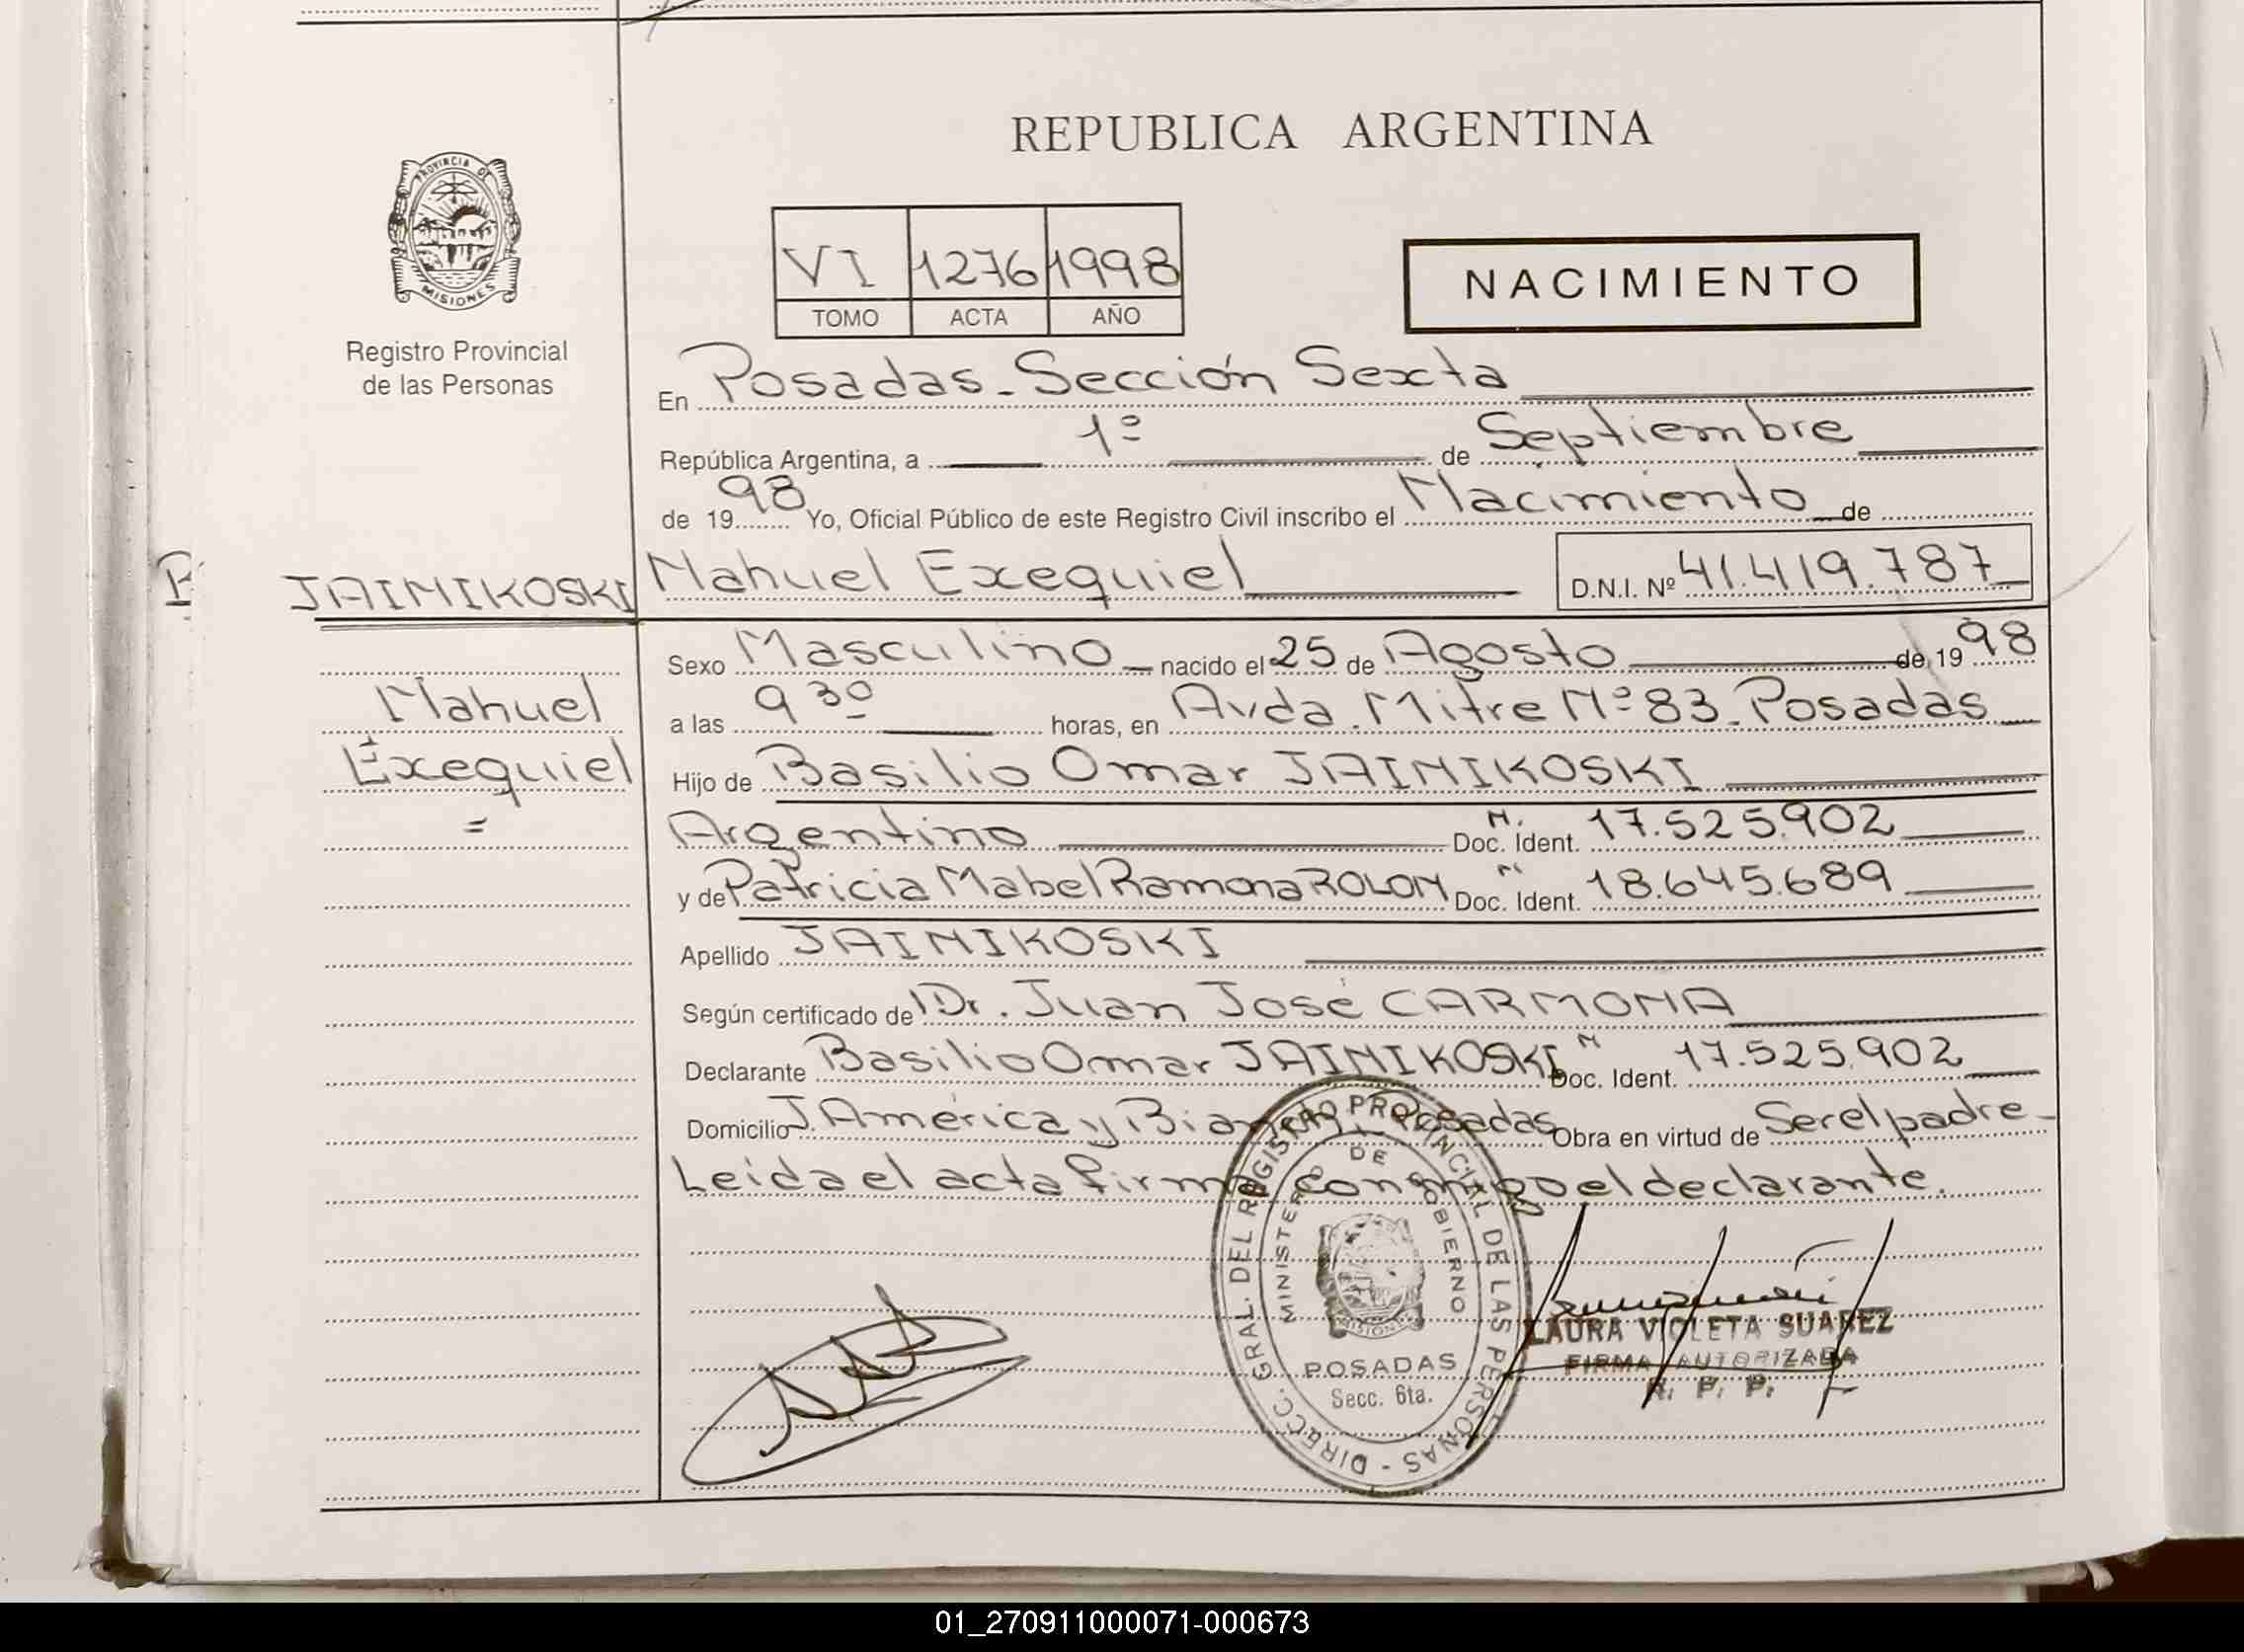 REPUBLICA ARGENTINA
PROVINCIA DE MISIONES
Registro Provincial
de las Personas
VI 1276 1998
TOMO ACTA AÑO
NACIMIENTO
En Posadas - Sección Sexta
República Argentina, a 1º de Septiembre
de 1998 Yo, Oficial Público de este Registro Civil inscribo el Nacimiento de
JAINIKOSKI Nahuel Exequiel D.N.I. Nº 41.419.787
Sexo Masculino nacido el 25 de Agosto de 1998
Nahuel
a las 9 30 horas, en Avda. Mitre Nº 83 - Posadas
Exequiel
Hijo de Basilio Omar JAINIKOSKI
Argentino Doc. N. Ident. 17.525.902
y de Patricia Mabel Ramona ROLON Doc. N Ident. 18.645.689
Apellido JAINIKOSKI
Según certificado de Dr. Juan José CARMONA
Declarante Basilio Omar JAINIKOSKI Doc. N Ident. 17.525.902
Domicilio J. América y Posadas Obra en virtud de Ser el padre -
Leida el acta firma conmigo el declarante.
DIRECC. GRAL. DEL REGISTRO PROVINCIAL DE LAS PERSONAS -
MINISTERIO DE GOBIERNO
MISIONES
POSADAS
Secc. 6ta.
LAURA VIOLETA SUAREZ
FIRMA AUTORIZADA
R. P. P.
01_270911000071-000673